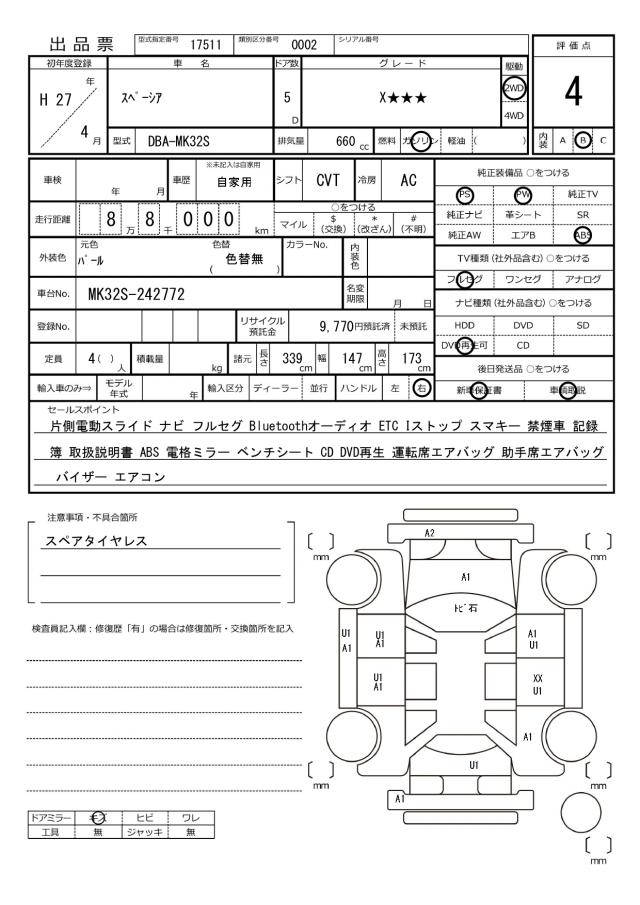 出品票
型式指定番号 17511 類別区分番号 0002 シリアル番号
評価点
4
初年度登録 車名 ドア数 グレード 駆動
H 27 年 4 月
スペーシア
5 D
X★★★
2WD
4WD
内装 A B C
型式 DBA-MK32S 排気量 660 cc 燃料 ガソリン 軽油 ( )
車検 年 月 車歴 ※未記入は自家用 自家用 シフト CVT 冷房 AC
走行距離 8 万 8 千 0 0 0 km
○をつける
マイル $(交換) *(改ざん) #(不明)
外装色 元色 パール 色替 ( 色替無 ) カラーNo. 内装色
車台No. MK32S-242772 名変期限 月 日
登録No. リサイクル預託金 9,770円預託済 未預託
定員 4( )人 積載量 kg 諸元 長さ 339cm 幅 147cm 高さ 173cm
輸入車のみ⇒ モデル年式 年 輸入区分 ディーラー 並行 ハンドル 左 右
純正装備品 ○をつける
PS PW 純正TV
純正ナビ 革シート SR
純正AW エアB ABS
TV種類(社外品含む)○をつける
フルセグ ワンセグ アナログ
ナビ種類(社外品含む)○をつける
HDD DVD SD
DVD再生可 CD
後日発送品 ○をつける
新車保証書 車輌取説
セールスポイント
片側電動スライド ナビ フルセグ Bluetoothオーディオ ETC Iストップ スマキー 禁煙車 記録
簿 取扱説明書 ABS 電格ミラー ベンチシート CD DVD再生 運転席エアバッグ 助手席エアバッグ
バイザー エアコン
注意事項・不具合箇所
スペアタイヤレス
検査員記入欄:修復歴「有」の場合は修復箇所・交換箇所を記入
ドアミラー キズ ヒビ ワレ
工具 無 ジャッキ 無
〔 〕 mm
A2
〔 〕 mm
A1
トビ石
U1 A1
U1 A1
A1 U1
U1 A1
XX U1
A1
U1
〔 〕 mm
〔 〕 mm
A1
〔 〕 mm